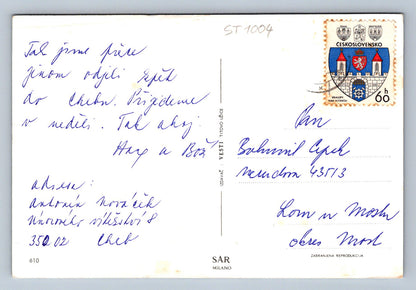 ST 1004
ČESKOSLOVENSKO
60 h
Tak jsme přece
jinom odjeli zpět
do Chebu. Přijedeme
v neděli. Tak ahoj
a Bož
adresa:
Antonín Nováček
Únorového vítězství 8
350 02 Cheb
VESTI
Pan
Bohumil Cipek
43513
Lom u Mostu
okres Most
610
SAR
MILANO
ZABRANJENA REPRODUKCIJA